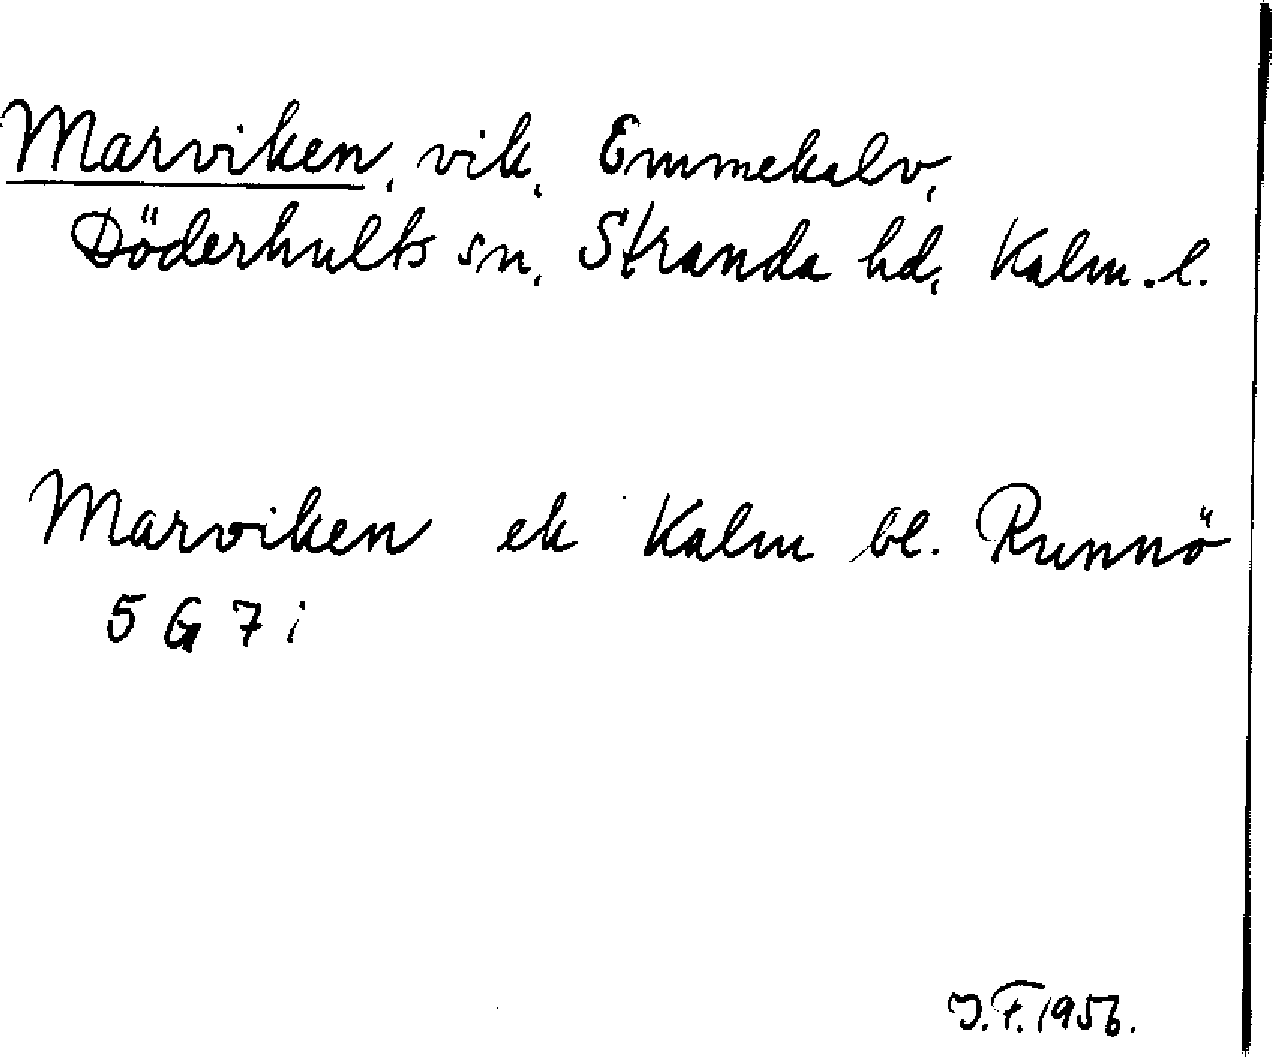 Marviken, vik, Emmekalv,
Döderhults sn, Stranda hd, Kalm. l.
Marviken ek Kalm bl. Runnö
5 G 7 i
J.F. 1956.